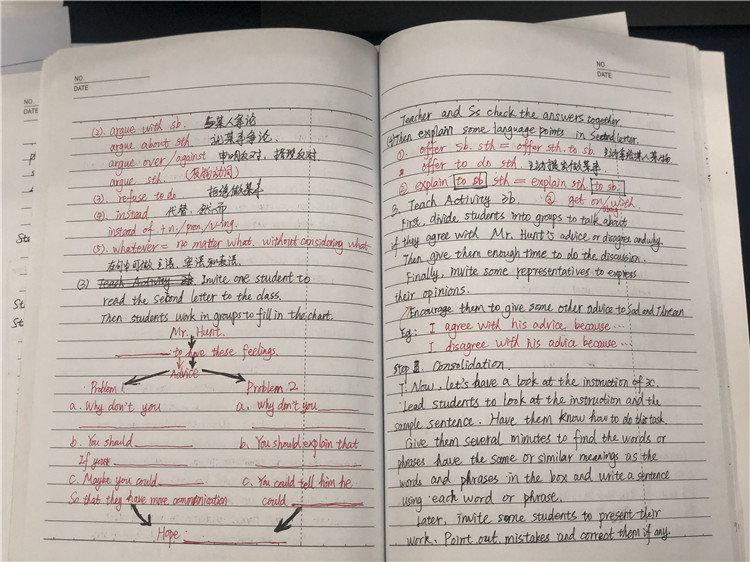 NO.
DATE
(2). argue with sb. 与某人争论
argue about sth 讨某事争论.
argue over/against 申明反对, 据理反对.
argue sth. (及物动词)
(3). refuse to do 拒绝做某事
(4). instead 代替, 然而
instead of + n/pron/v-ing.
(5). whatever = no matter what, without considering what
在句中可做主语、宾语和表语.
(3) Teach Activity 2b Invite one student to
read the second letter to the class.
Then students work in groups to fill in the chart.
Mr. Hunt.
to have these feelings.
Advice
Problem 1 Problem 2
a. Why don't you a. Why don't you
b. You should b. You should explain that
If your
c. Maybe you could c. You could tell him he
So that they have more communication could
Hope:
NO.
DATE
Teacher and Ss check the answers together.
(4) Then explain some language points in Second letter.
①. offer sb. sth = offer sth. to sb. 主动拿给某人某物
offer to do sth 主动提出做某事.
② explain to sb sth = explain sth to sb.
3. Teach Activity 2b. ③ get on/along with.
First, divide students into groups to talk about
if they agree with Mr. Hunt's advice or disagree and why.
Then give them enough time to do the discussion.
Finally, invite some representatives to express
their opinions.
Encourage them to give some other advice to Sad and Thirteen
Eg: I agree with his advice because...
I disagree with his advice because...
Step Ⅲ. Consolidation.
1. Now, let's have a look at the instruction of 3c.
Lead students to look at the instruction and the
sample sentence. Have them know how to do the task
Give them several minutes to find the words or
phrases have the same or similar meanings as the
words and phrases in the box and write a sentence
using each word or phrase.
Later, invite some students to present their
work. Point out mistakes and correct them if any.